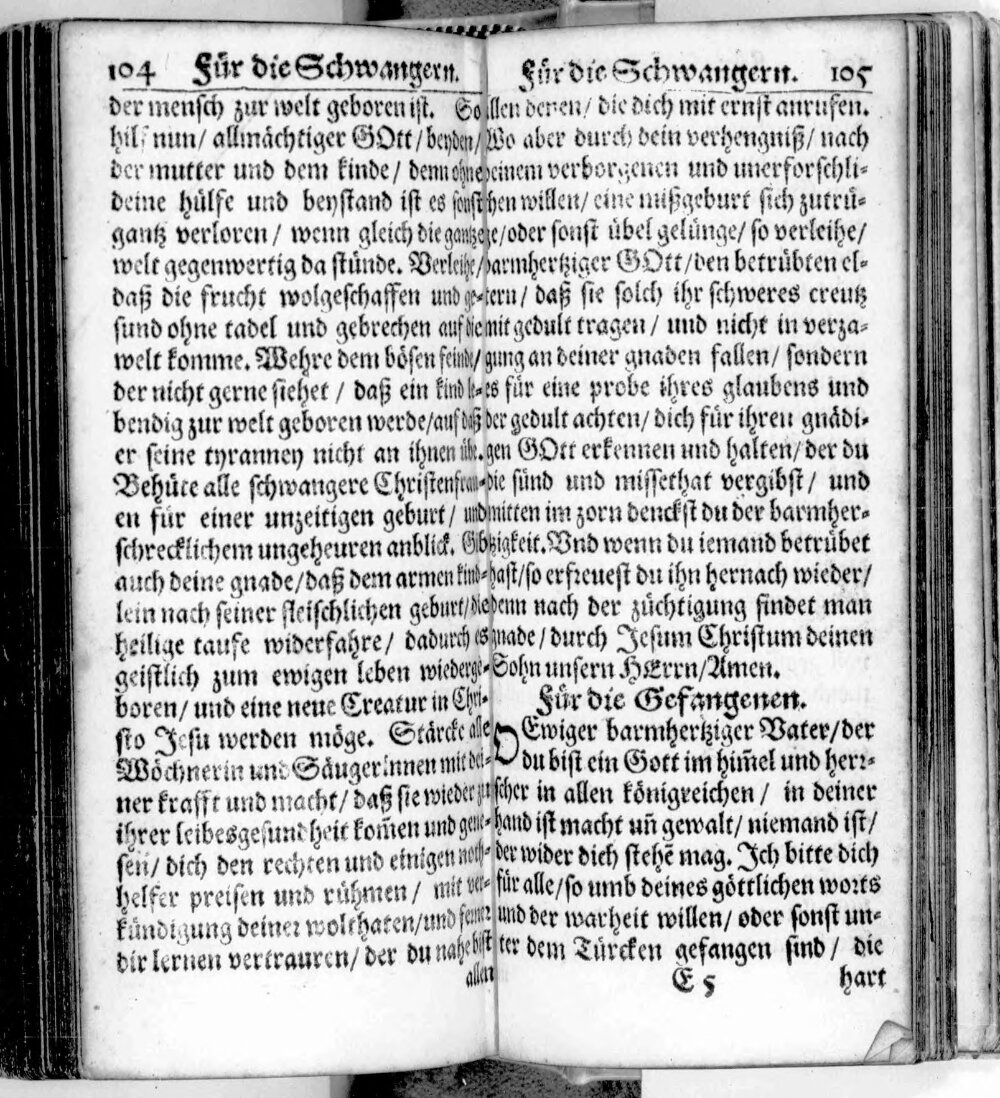 104 Für die Schwangern.
der mensch zur welt geboren ist. So
hilf nun/ allmächtiger GOtt/ beyden/
der mutter und dem kinde/ denn ohne
deine hülfe und beystand ist es sonst
gantz verloren/ wenn gleich die gantze
welt gegenwertig da stünde. Verleihe/
daß die frucht wolgeschaffen und ge-
sund ohne tadel und gebrechen auf die
welt komme. Wehre dem bösen feinde/
der nicht gerne siehet/ daß ein kind le-
bendig zur welt geboren werde/auf daß
er seine tyranney nicht an ihnen übe.
Behüte alle schwangere Christenfrau-
en für einer unzeitigen geburt/ und
schrecklichem ungeheuren anblick. Gib
auch deine gnade/daß dem armen kind-
lein nach seiner fleischlichen geburt/die
heilige taufe widerfahre/ dadurch es
geistlich zum ewigen leben wiederge-
boren/ und eine neue Creatur in Chri-
sto Jesu werden möge. Stärcke alle
Wöchnerin und Säugerinnen mit dei-
ner krafft und macht/ daß sie wieder zu
ihrer leibesgesundheit kom̃en und gene-
sen/ dich den rechten und einigen noth-
helfer preisen und rühmen/ mit ver-
kündigung deiner wolthaten/und ferner
dir lernen vertrauren/ der du nahe bist
allen
Für die Schwangern. 105
allen denen/ die dich mit ernst anrufen.
Wo aber durch dein verhengniß/ nach
deinem verborgenen und unerforschli-
chen willen/ eine mißgeburt sich zutrü-
ge/oder sonst übel gelünge/ so verleihe/
barmhertziger GOtt/den betrübten el-
tern/ daß sie solch ihr schweres creutz
mit gedult tragen/ und nicht in verza-
gung an deiner gnaden fallen/ sondern
es für eine probe ihres glaubens und
der gedult achten/ dich für ihren gnädi-
gen GOtt erkennen und halten/ der du
die sünd und missethat vergibst/ und
mitten im zorn denckst du der barmher-
tzigkeit. Vnd wenn du iemand betrübet
hast/so erfreuest du ihn hernach wieder/
denn nach der züchtigung findet man
gnade/ durch Jesum Christum deinen
Sohn unsern HErrn/Amen.
Für die Gefangenen.
O Ewiger barmhertziger Vater/der
du bist ein Gott im him̃el und herr-
scher in allen königreichen/ in deiner
hand ist macht uñ gewalt/ niemand ist/
der wider dich stehẽ mag. Ich bitte dich
für alle/so umb deines göttlichen worts
und der warheit willen/ oder sonst un-
ter dem Türcken gefangen sind/ die
E 5 hart